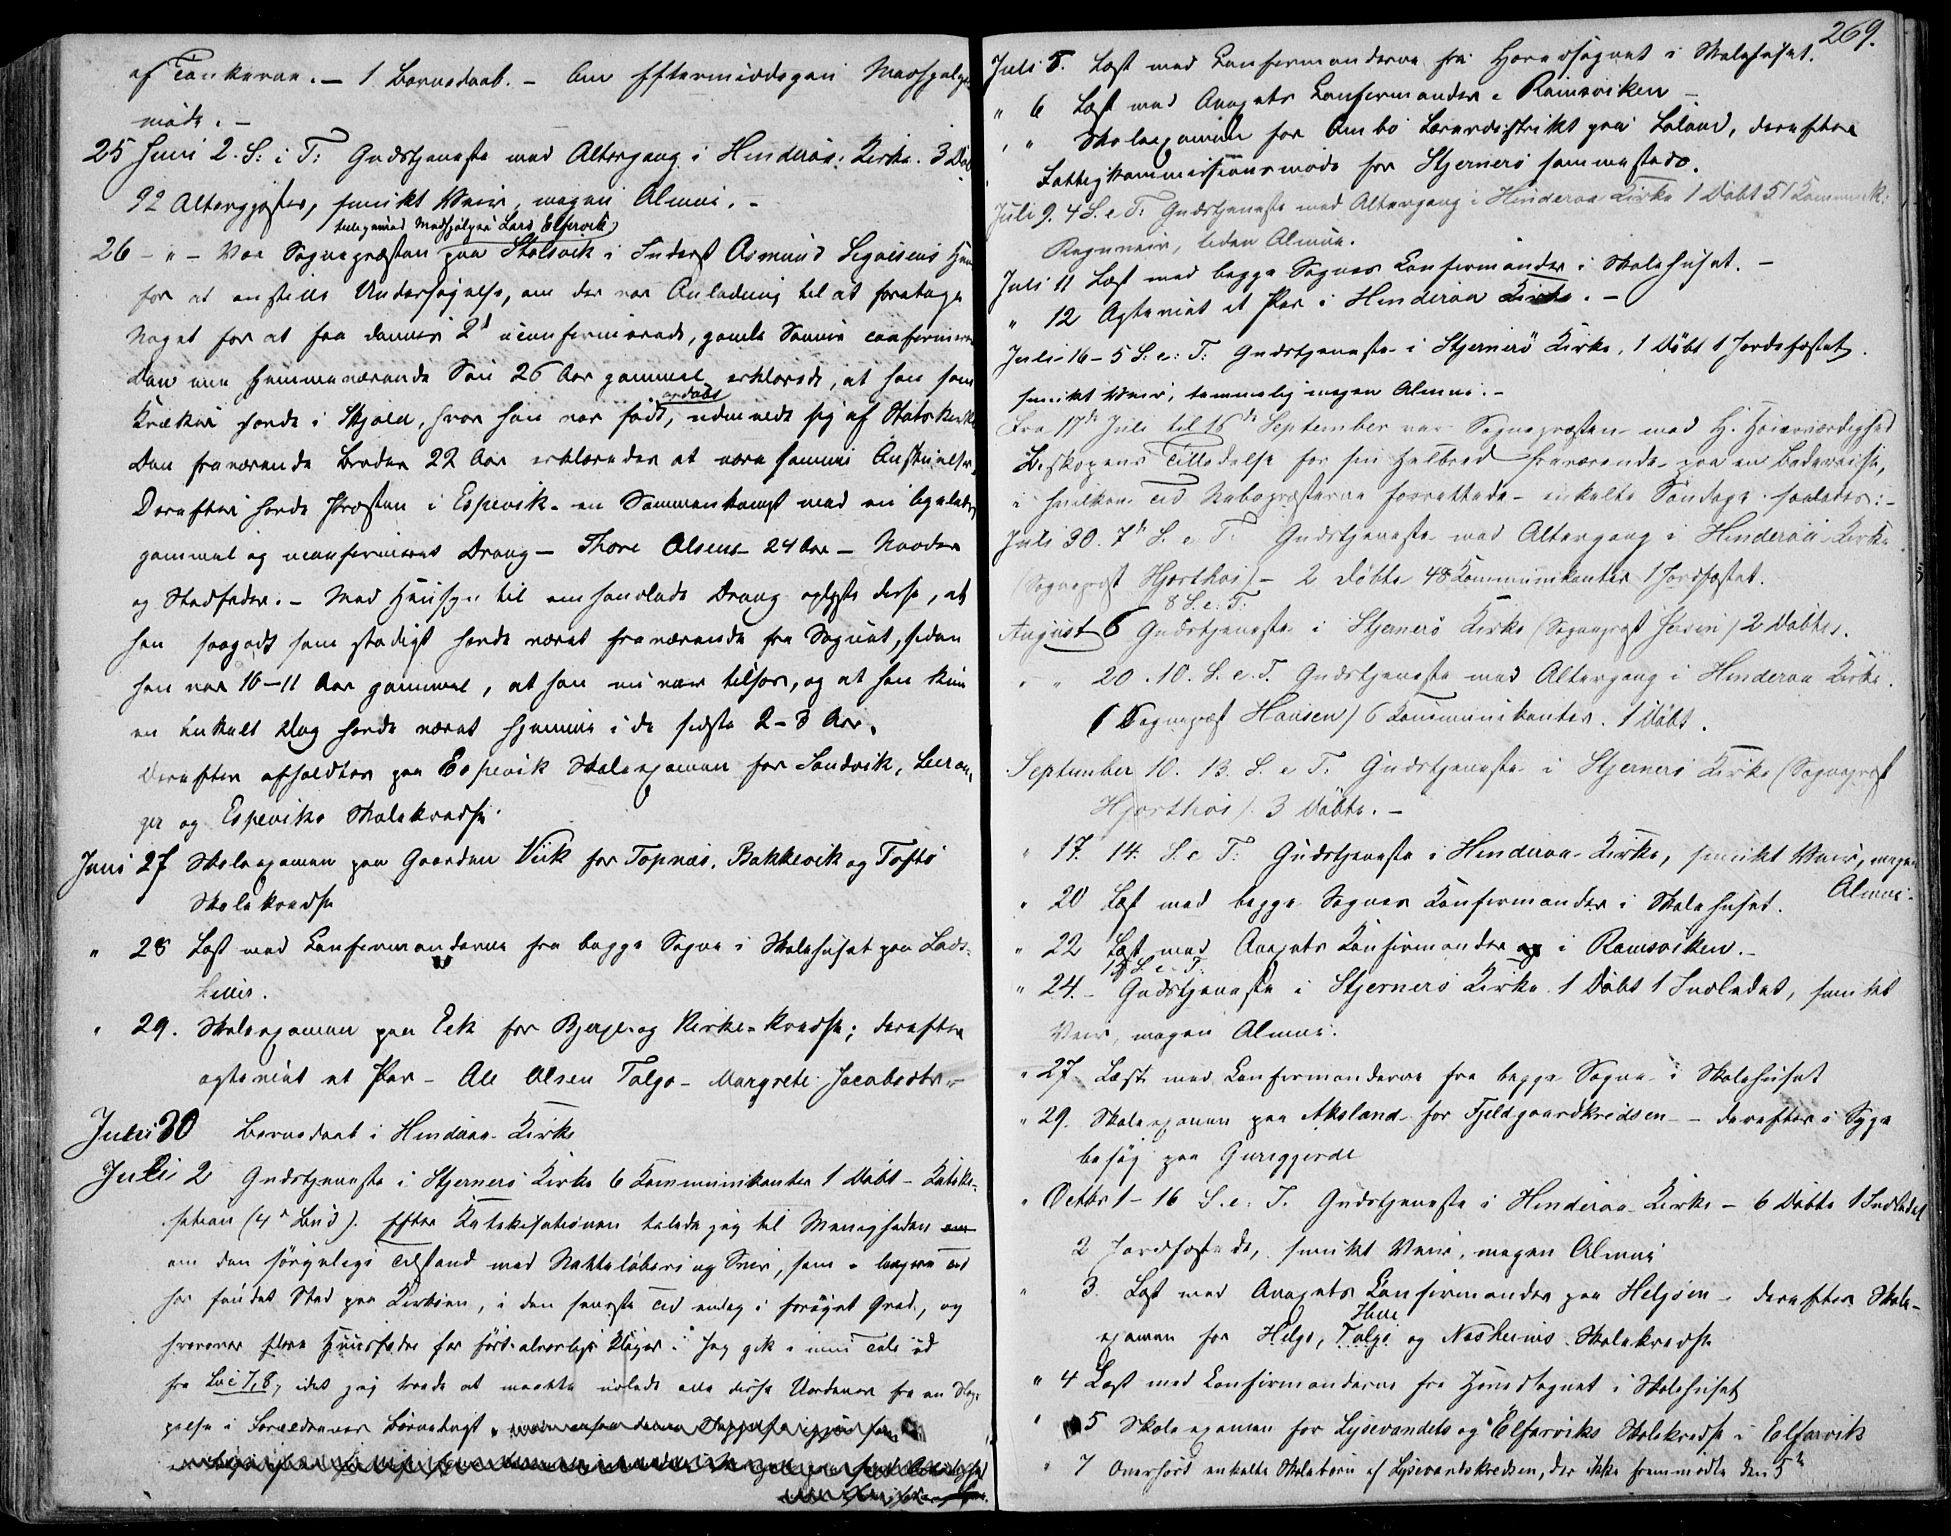 af Tankerne. — 1 Barnedaab. — Om Eftermiddagen Medhjælper
møde. —
25 Juni 2. S: i T: Gudstjeneste med Altergang i Hinderaa Kirke. 3 Døbt
92 Altergjæster, smukt Veir, megen Almue. —
tilligemed Medhjælper Lars Elfarvik
26 — „ — Var Sognepræsten paa Stolsvik i Inderst Asmund Sjursens Huus
for at anstille Undersøgelse, om der var Anledning til at foretage
Noget for at faa dennes 2de uconfirmerede, gamle Sønner confirmere
Den ene hjemmeværende Søn 26 Aar gammel erklærede, at han som
Kvæker havde i Skjold, hvor han var født, udmeldt sig af Statskirke
Den fraværende Broder 22 Aar erklæredes at være samme Anskuelse.
Derefter havde Præsten i Espevik en Sammenkomst med en
gammel og uconfirmeret Dreng — Thore Olsen 24 Aar — Moder
og Stedfader. — Med Hensyn til omhandlede Dreng oplyste disse, at
han saagodt som stadigt havde været fraværende fra Sognet, siden
han var 10–11 Aar gammel, at han nu var tilsøes, og at han kun
en enkelt Dag havde været hjemme i de sidste 2–3 Aar.
Derefter afholdtes paa Espevik Skoleexamen for Sandvik,
ger og Espeviks Skolekredse.
Juni 27 Skoleexamen paa Gaarden Viik for Topnæs, Bakkevik og Toftø
Skolekredse
„ 28 Læst med Confirmanderne fra begge Sogne i Skolehuset paa Lads-
„ 29. Skoleexamen paa Eek for Bjerge- og Kirke-Kredse; derefter
ægteviet et Par — Ole Olsen Talgø — Margrete Jacobsdtr. —
Juni 30 Barnedaab i Hinderaa Kirke
Juli 2 Gudstjeneste i Stjernerø Kirke 6 Kommunikanter 1 Døbt — Kateki-
sation (4de Bud). Efter Katekisationen talede jeg til Menigheden
om den sørgelige Tilstand med Natteløberi og Sviir, som i længere Tid
har fundet Sted paa Kirkøen, i den seneste Tid endog i forøget Grad, og
hvorover flere Huusfædre har ført alvorlige Klager. Jeg gik i min Tale ud
fra Luc 7,8, idet jeg troede at maatte udlede alle disse Uordener fra en Slap-
pelse i Forældrenes Børnetugt.
269.
Juli 5. Læst med Confirmanderne fra Hovedsognet i Skolehuset.
„ 6 Læst med Anexets Confirmander i Ramsviken —
„ „ Skoleexamen for Ombo Læredistrikt paa Løland, derefter
Fattigkommissionsmøde for Stjernerø sammesteds.
Juli 9. 4 S. e. T: Gudstjeneste med Altergang i Hinderaa Kirke 1 Døbt 51 Kommunik:
Regnveir, liden Almue.
Juli 11 Læst med begge Sognes Confirmander i Skolehuset. —
„ 12 Ægteviet et Par i Hinderaa Kirke. —
Juli 16 — 5 S. e: T: Gudstjeneste i Stjernerø Kirke, 1 Døbt 1 Jordfæstet.
smukt Veir, temmelig megen Almue. —
Fra 17de Juli til 16de September var Sognepræsten med H. Høiærværdighed
Biskopens Tilladelse for sin Helbred fraværende paa en Badereise,
i hvilken Tid Nabopræsterne forrettede enkelte Søndage saaledes: —
Juli 30. 7de S. e. T: Gudstjeneste med Altergang i Hinderaa Kirke
(Sognepræst Hjorthøi) — 2 Døbte 48 Kommunikanter 1 Jordfæstet.
8 S. e. T:
August 6 Gudstjeneste i Stjernerø Kirke (Sognepræst ) 2 Døbtes.
„ „ 20. 10. S. e. T. Gudstjeneste med Altergang i Hinderaa Kirke.
(Sognepræst Hansen) 6 Kommunikanter. 1 Døbt.
September 10. 13. S. e T. Gudstjeneste i Stjernerø Kirke (Sognepræst
Hjorthøi). 3 Døbte. —
„ 17. 14. S. e T: Gudstjeneste i Hinderaa Kirke, smukt Veir, megen
Almue.
„ 20 Læst med begge Sognes Konfirmander i Skolehuset.
„ 22 Læst med Anexets Konfirmander i Ramsviken. —
15 S. e. T:
„ 24. — Gudstjeneste i Stjernerø Kirke 1 Døbt 1 Indledet, smukt
Veir, megen Almue.
„ 27 Læst med Confirmanderne fra begge Sogne i Skolehuset
„ 29. Skoleexamen paa Aksland for Fjeldgaardkredsen — derefter i Syge
besøg paa
„ Octbr 1 — 16 S. e. T. Gudstjeneste i Hinderaa Kirke — 6 Døbte 1 Indledet
2 Jordfæstede, smukt Veir, megen Almue
„ 3. Læst med Anexets Confirmander paa Helgøen — derefter Skole-
examen for Helgø, Talgø og Nesheims Skolekredse
„ 4 Læst med Confirmanderne fra Hovedsognet i Skolehuset
„ 5 Skoleexamen for Lysevandets og Elfarviks Skolekredse i Elfarvik
„ 7 Overhørt enkelte Skolebørn af Lysevandskredsen, der ikke fremmødte den 5te